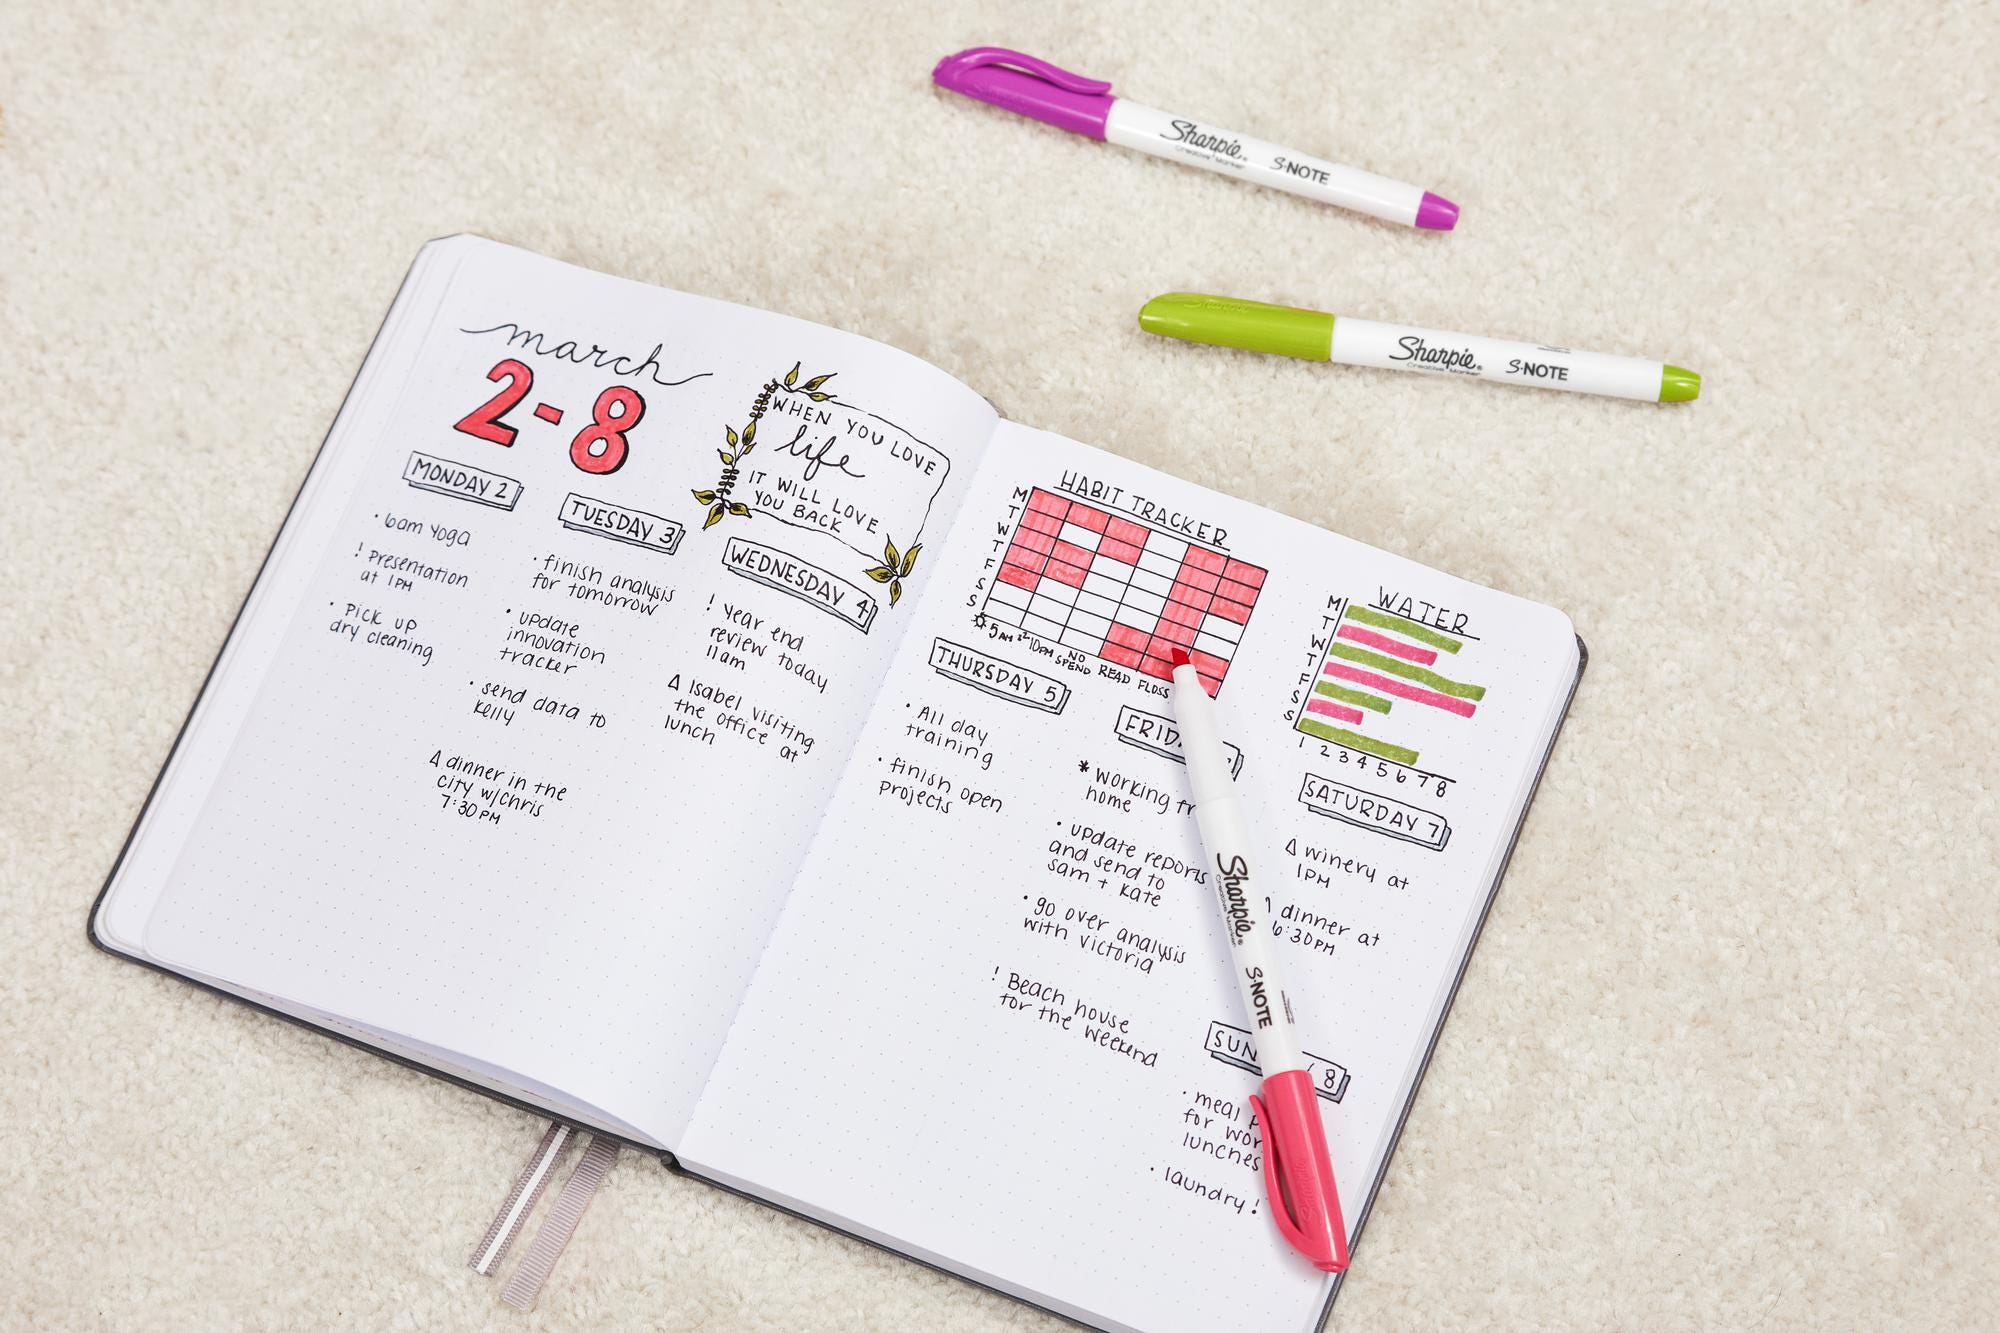 Sharpie®
Creative Marker
S·NOTE
Sharpie®
Creative Marker
S·NOTE
march
2-8
WHEN YOU LOVE
life
IT WILL LOVE
YOU BACK
MONDAY 2
· 6am yoga
! Presentation
at 1PM
· Pick up
dry cleaning
TUESDAY 3
· finish analysis
for tomorrow
· update
innovation
tracker
· send data to
kelly
Δ dinner in the
city w/chris
7:30PM
WEDNESDAY 4
! Year end
review today
11am
Δ Isabel visiting
the office at
lunch
HABIT TRACKER
M
T
W
T
F
S
S
5AM 10PM NO SPEND READ FLOSS
WATER
M
T
W
T
F
S
S
1 2 3 4 5 6 7 8
THURSDAY 5
· All day
training
· finish open
projects
FRID
* Working
home
· update reports
and send to
sam + kate
· go over analysis
with victoria
! Beach house
for the weekend
SATURDAY 7
Δ winery at
1PM
dinner at
6:30PM
SUN 8
· meal
for
lunches
· laundry!
Sharpie®
Creative Marker
S·NOTE